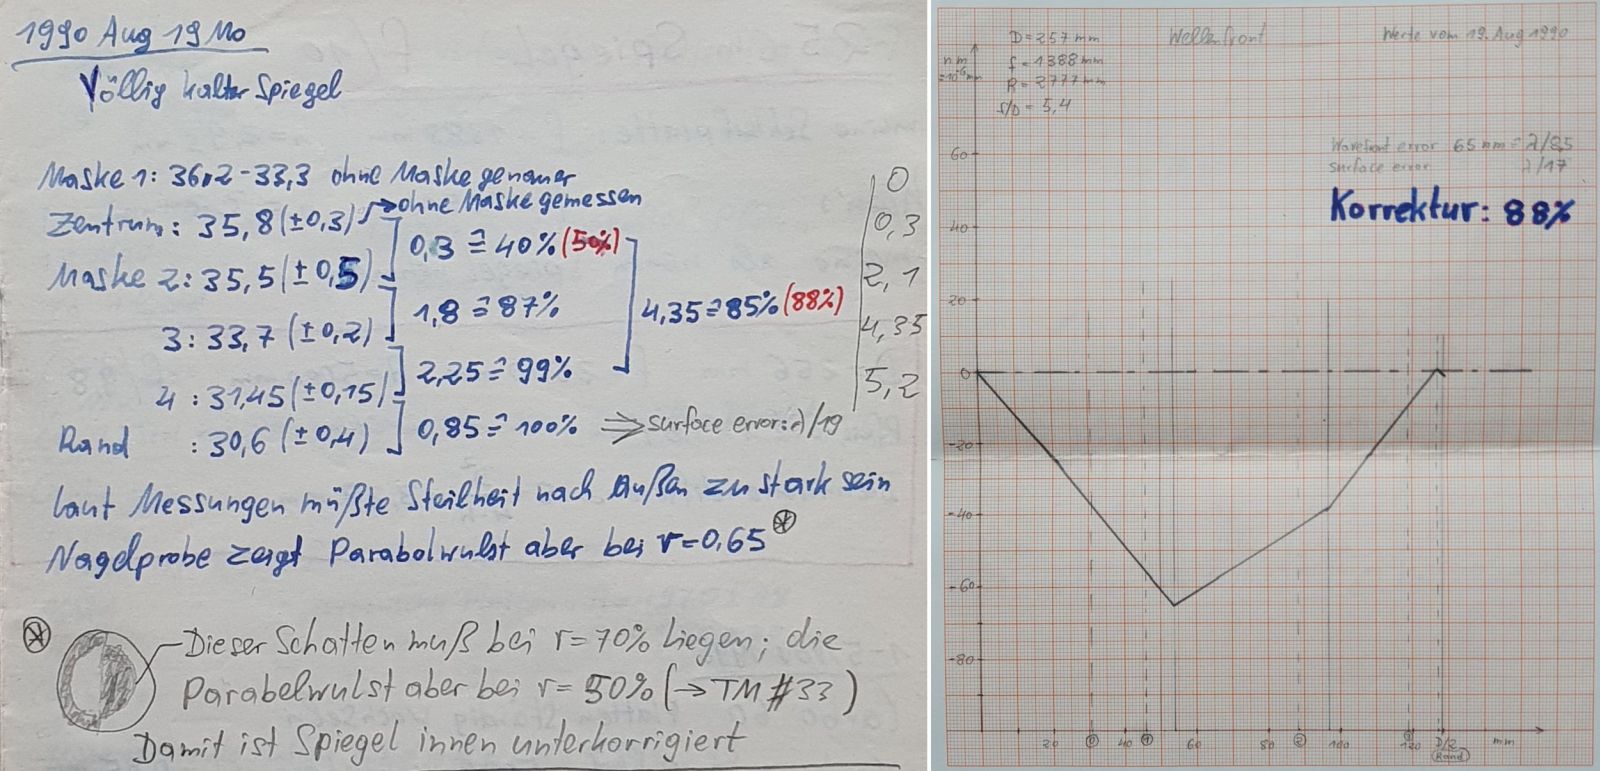 1990 Aug 19 Mo
Völlig kalter Spiegel
Maske 1: 36,2-33,3 ohne Maske genauer
Zentrum: 35,8 (±0,3) → ohne Maske gemessen
0,3 ≙ 40% (50%)
Maske 2: 35,5 (±0,5)
1,8 ≙ 87%
4,35 ≙ 85% (88%)
3: 33,7 (±0,2)
2,25 ≙ 99%
4: 31,45 (±0,15)
0,85 ≙ 100% ⇒ surface error: λ/19
Rand : 30,6 (±0,4)
0
0,3
2,1
4,35
5,2
laut Messungen müßte Steilheit nach Außen zu stark sein
Nagelprobe zeigt Parabolwulst aber bei r=0,65 *
* Dieser Schatten muß bei r=70% liegen; die
Parabelwulst aber bei r=50% (→ TM #33)
Damit ist Spiegel innen unterkorrigiert
D=257 mm
f=1388 mm
R=2777 mm
f/D=5,4
Wellenfront
Werte vom 19. Aug 1990
nm
=10⁻⁶mm
Wavefront error 65 nm = λ/8,5
surface error λ/17
Korrektur: 88%
60
40
20
0
-20
-40
-60
-80
20
40
60
80
100
120
D/2
mm
Rand